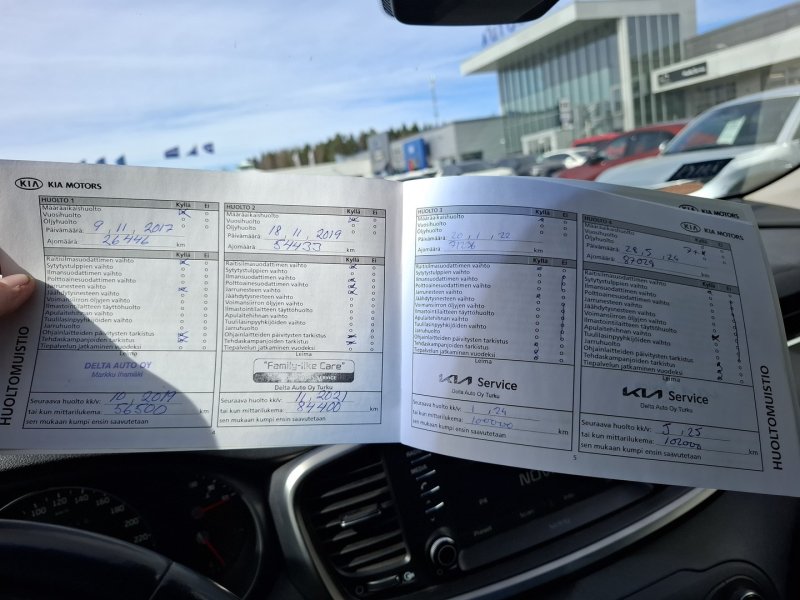 KIA KIA MOTORS
HUOLTO 1 Kyllä Ei
Määräaikaishuolto
Vuosihuolto
Öljyhuolto
Päivämäärä: 9, 11, 2017
Ajomäärä: 26446 km
Kyllä Ei
Raitisilmasuodattimen vaihto
Sytytystulppien vaihto
Ilmansuodattimen vaihto
Polttoainesuodattimen vaihto
Jarrunesteen vaihto
Jäähdytysnesteen vaihto
Voimansiirron öljyjen vaihto
Ilmastointilaitteen täyttöhuolto
Apulaitehihnan vaihto
Tuulilasinpyyhkijöiden vaihto
Jarruhuolto
Ohjainlaitteiden päivitysten tarkistus
Tehdaskampanjoiden tarkistus
Tiepalvelun jatkaminen vuodeksi
Leima
DELTA AUTO OY
Markku Ihamäki
Seuraava huolto kk/v: 10, 2019
tai kun mittarilukema: 56500 km
sen mukaan kumpi ensin saavutetaan
HUOLTOMUISTIO
4
HUOLTO 2 Kyllä Ei
Määräaikaishuolto
Vuosihuolto
Öljyhuolto
Päivämäärä: 18, 11, 2019
Ajomäärä: 54433 km
Kyllä Ei
Raitisilmasuodattimen vaihto
Sytytystulppien vaihto
Ilmansuodattimen vaihto
Polttoainesuodattimen vaihto
Jarrunesteen vaihto
Jäähdytysnesteen vaihto
Voimansiirron öljyjen vaihto
Ilmastointilaitteen täyttöhuolto
Apulaitehihnan vaihto
Tuulilasinpyyhkijöiden vaihto
Jarruhuolto
Ohjainlaitteiden päivitysten tarkistus
Tehdaskampanjoiden tarkistus
Tiepalvelun jatkaminen vuodeksi
Leima
"Family-like Care"
SERVICE
Delta Auto Oy Turku
Seuraava huolto kk/v: 11, 2021
tai kun mittarilukema: 84400 km
sen mukaan kumpi ensin saavutetaan
HUOLTO 3 Kyllä Ei
Määräaikaishuolto
Vuosihuolto
Öljyhuolto
Päivämäärä: 20, 1, 22
Ajomäärä: km
Kyllä Ei
Raitisilmasuodattimen vaihto
Sytytystulppien vaihto
Ilmansuodattimen vaihto
Polttoainesuodattimen vaihto
Jarrunesteen vaihto
Jäähdytysnesteen vaihto
Voimansiirron öljyjen vaihto
Ilmastointilaitteen täyttöhuolto
Apulaitehihnan vaihto
Tuulilasinpyyhkijöiden vaihto
Jarruhuolto
Ohjainlaitteiden päivitysten tarkistus
Tehdaskampanjoiden tarkistus
Tiepalvelun jatkaminen vuodeksi
Leima
KIA Service
Delta Auto Oy Turku
Seuraava huolto kk/v: 1, 24
tai kun mittarilukema: km
sen mukaan kumpi ensin saavutetaan
5
KIA KIA MOTORS
HUOLTO 4 Kyllä Ei
Määräaikaishuolto
Vuosihuolto
Öljyhuolto
Päivämäärä: 28, 5, 24
Ajomäärä: 87029 km
Kyllä Ei
Raitisilmasuodattimen vaihto
Sytytystulppien vaihto
Ilmansuodattimen vaihto
Polttoainesuodattimen vaihto
Jarrunesteen vaihto
Jäähdytysnesteen vaihto
Voimansiirron öljyjen vaihto
Ilmastointilaitteen täyttöhuolto
Apulaitehihnan vaihto
Tuulilasinpyyhkijöiden vaihto
Jarruhuolto
Ohjainlaitteiden päivitysten tarkistus
Tehdaskampanjoiden tarkistus
Tiepalvelun jatkaminen vuodeksi
Leima
KIA Service
Delta Auto Oy Turku
Seuraava huolto kk/v: 5, 25
tai kun mittarilukema: 102000 km
sen mukaan kumpi ensin saavutetaan
HUOLTOMUISTIO
MEDIA